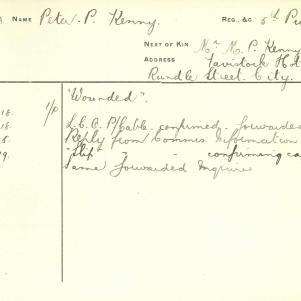 NAME Peter. P. Kenny. REG., &C. 5th
NEXT OF KIN Mr. M. P. Kenny
ADDRESS Tavistock Hot
Rundle Street. City.
18. I/P "Wounded".
18. L.C.O. P/Cable confirmed forwarded
Reply from Commns. Information
19. "slip" " " confirming ca
same forwarded Enquirer